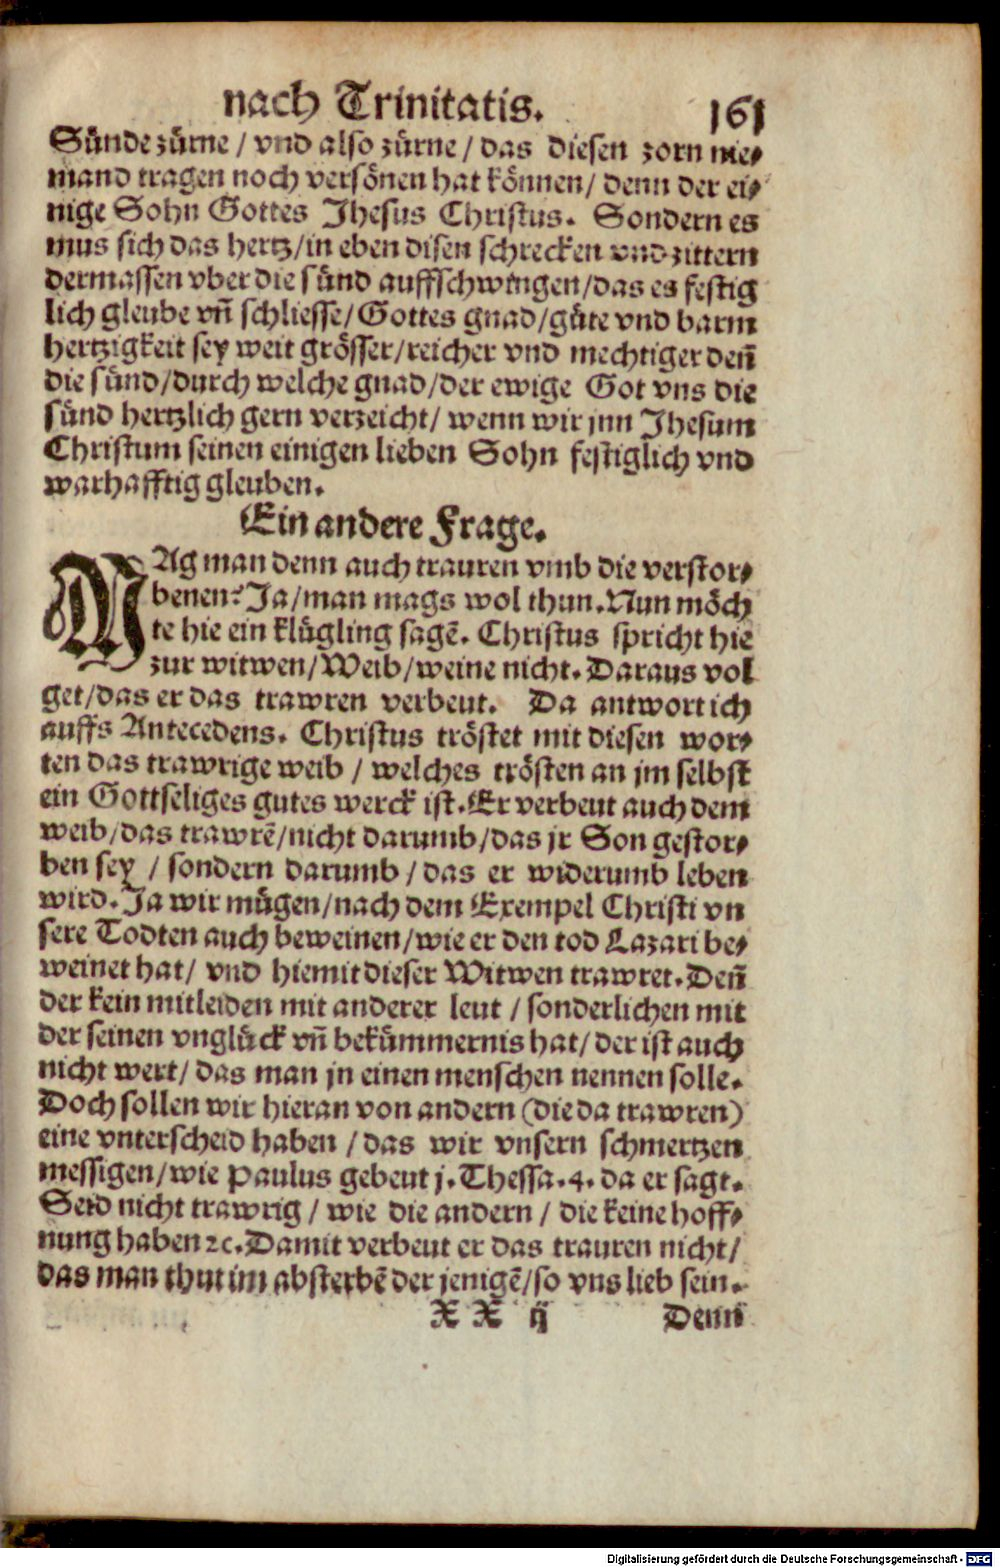 nach Trinitatis. 161
Sünde zürne / vnd also zürne / das diesen zorn nie⸗
mand tragen noch versönen hat können / denn der ei⸗
nige Sohn Gottes Jhesus Christus. Sondern es
mus sich das hertz / in eben disen schrecken vnd zittern
dermassen vber die sünd auffschwingen / das es festig
lich gleube vñ schliesse / Gottes gnad / güte vnd barm
hertzigkeit sey weit grösser / reicher vnd mechtiger deñ
die sünd / durch welche gnad / der ewige Got vns die
sünd hertzlich gern verzeicht / wenn wir jnn Jhesum
Christum seinen einigen lieben Sohn festiglich vnd
warhafftig gleuben.
Ein andere Frage.
MAg man denn auch trauren vmb die verstor⸗
benen? Ja / man mags wol thun. Nun möch
te hie ein klügling sagē. Christus spricht hie
zur witwen / Weib / weine nicht. Daraus vol
get / das er das trawren verbeut. Da antwort ich
auffs Antecedens. Christus tröstet mit diesen wor⸗
ten das trawrige weib / welches trösten an jm selbst
ein Gottseliges gutes werck ist. Er verbeut auch dem
weib / das trawrē / nicht darumb / das jr Son gestor⸗
ben sey / sondern darumb / das er widerumb leben
wird. Ja wir mügen / nach dem Exempel Christi vn
sere Todten auch beweinen / wie er den tod Lazari be⸗
weinet hat / vnd hiemit dieser Witwen trawret. Deñ
der kein mitleiden mit anderer leut / sonderlichen mit
der seinen vnglück vñ bekümmernis hat / der ist auch
nicht wert / das man jn einen menschen nennen solle.
Doch sollen wir hieran von andern (die da trawren)
eine vnterscheid haben / das wir vnsern schmertzen
messigen / wie Paulus gebeut j. Thessa. 4. da er sagt.
Seid nicht trawrig / wie die andern / die keine hoff⸗
nung haben ꝛc. Damit verbeut er das trauren nicht /
das man thut im absterbē der jenigē / so vns lieb sein.
XX ij Denn
Digitalisierung gefördert durch die Deutsche Forschungsgemeinschaft - DFG